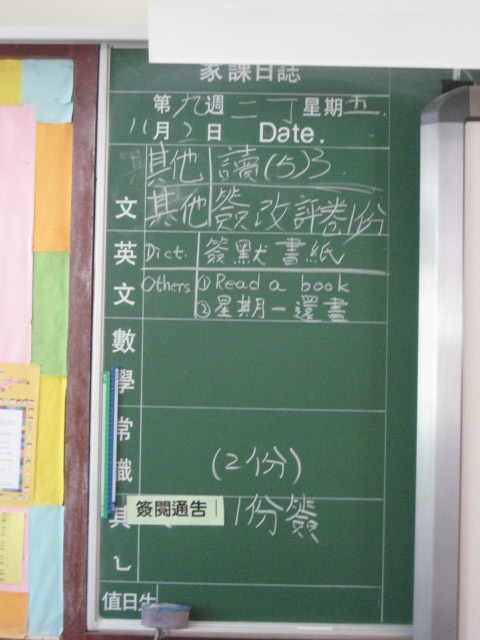 家課日誌
第九週 二丁 星期五
11月2日 Date.
其他 讀(5)3
文 其他 簽改評卷1份
英 Dict. 簽默書紙
文 Others ①Read a book
②星期一還書
數
學
常
識 (2份)
簽閱通告 1份簽
值日生